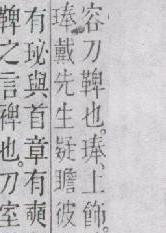 容刀鞞也。琫、上飾。
琫戴先生疑瞻彼
有珌與首章有奭
鞞之言裨也。刀室